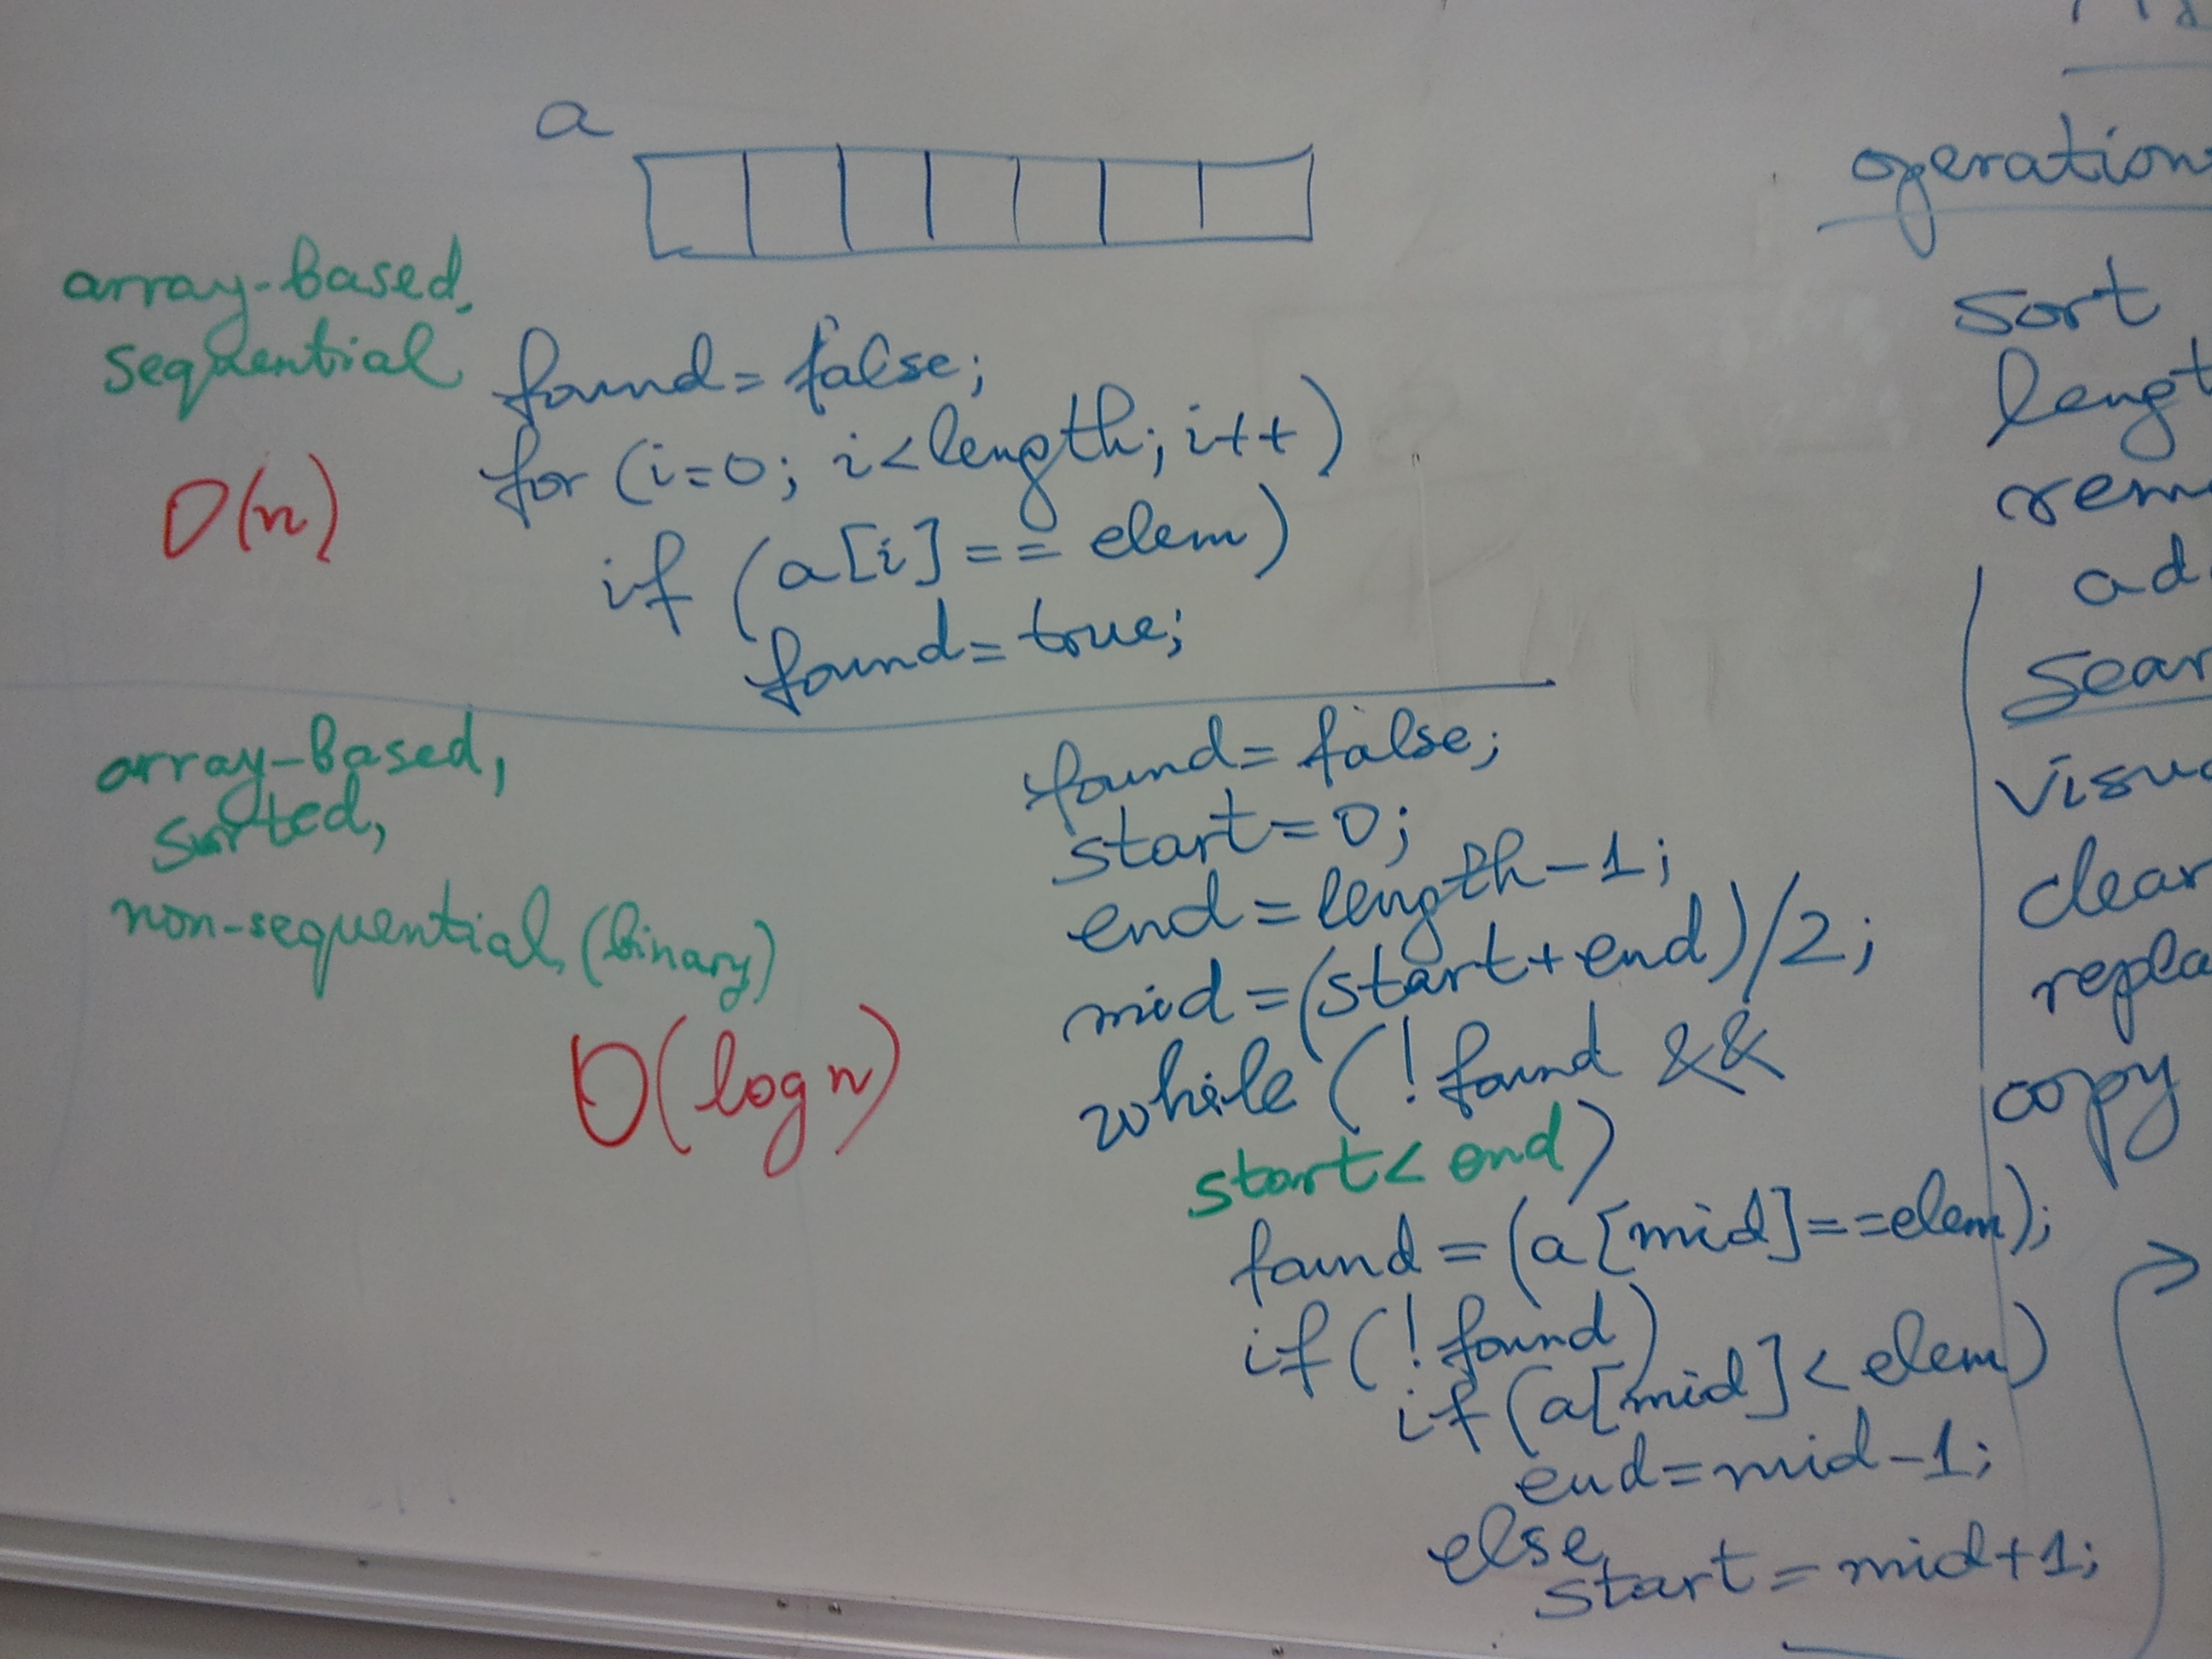 a
array-based,
sequential
O(n)
found = false;
for (i=0; i<length; i++)
if (a[i] == elem)
found = true;
array-based,
sorted,
non-sequential, (binary)
O(log n)
found = false;
start = 0;
end = length-1;
mid = (start+end)/2;
while (!found &&
start < end)
found = (a[mid]==elem);
if (!found)
if (a[mid] < elem)
end = mid-1;
else
start = mid+1;
operation
sort
lengt
rem
ad
sear
visu
clear
repla
copy